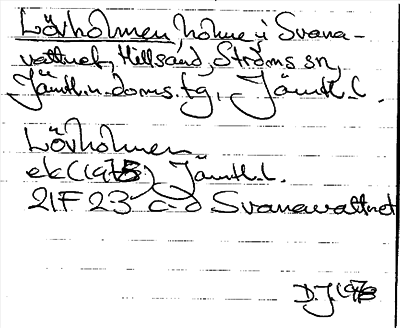 Lövholmen, holme i Svana-
vattnet, Hillsand, Ströms sn,
Jämtl. n. doms. tg., Jämtl. l.
Lövholmen
ek (1978) Jämtl. l.
21F 23 c-d Svanavattnet
D.J. 1978